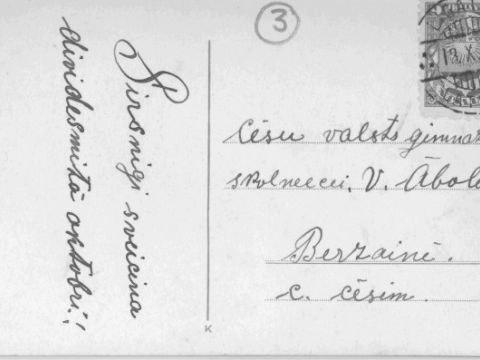 3
Sirsnigi sveicina
dividesmitā oktobri!
Cēsu valsts gimnaz
skolneecei, V. Ābol
Berzainē.
c. Cēsim.
K
13.X